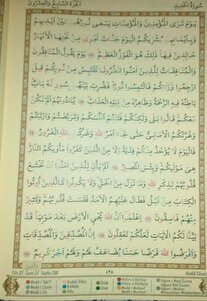 سُورَةُ الْحَدِيدِ الْجُزْءُ السَّابِعُ وَالْعِشْرُونَ
يَوْمَ تَرَى الْمُؤْمِنِينَ وَالْمُؤْمِنَاتِ يَسْعَى نُورُهُمْ بَيْنَ أَيْدِيهِمْ
وَبِأَيْمَانِهِمْ بُشْرَاكُمُ الْيَوْمَ جَنَّاتٌ تَجْرِي مِنْ تَحْتِهَا الْأَنْهَارُ
خَالِدِينَ فِيهَا ذَلِكَ هُوَ الْفَوْزُ الْعَظِيمُ يَوْمَ يَقُولُ الْمُنَافِقُونَ
وَالْمُنَافِقَاتُ لِلَّذِينَ آمَنُوا انْظُرُونَا نَقْتَبِسْ مِنْ نُورِكُمْ قِيلَ
ارْجِعُوا وَرَاءَكُمْ فَالْتَمِسُوا نُورًا فَضُرِبَ بَيْنَهُمْ بِسُورٍ لَهُ بَابٌ
بَاطِنُهُ فِيهِ الرَّحْمَةُ وَظَاهِرُهُ مِنْ قِبَلِهِ الْعَذَابُ يُنَادُونَهُمْ أَلَمْ نَكُنْ
مَعَكُمْ قَالُوا بَلَى وَلَكِنَّكُمْ فَتَنْتُمْ أَنْفُسَكُمْ وَتَرَبَّصْتُمْ وَارْتَبْتُمْ
وَغَرَّتْكُمُ الْأَمَانِيُّ حَتَّى جَاءَ أَمْرُ اللَّهِ وَغَرَّكُمْ بِاللَّهِ الْغَرُورُ
فَالْيَوْمَ لَا يُؤْخَذُ مِنْكُمْ فِدْيَةٌ وَلَا مِنَ الَّذِينَ كَفَرُوا مَأْوَاكُمُ النَّارُ
هِيَ مَوْلَاكُمْ وَبِئْسَ الْمَصِيرُ أَلَمْ يَأْنِ لِلَّذِينَ آمَنُوا أَنْ تَخْشَعَ
قُلُوبُهُمْ لِذِكْرِ اللَّهِ وَمَا نَزَلَ مِنَ الْحَقِّ وَلَا يَكُونُوا كَالَّذِينَ أُوتُوا
الْكِتَابَ مِنْ قَبْلُ فَطَالَ عَلَيْهِمُ الْأَمَدُ فَقَسَتْ قُلُوبُهُمْ وَكَثِيرٌ
مِنْهُمْ فَاسِقُونَ اعْلَمُوا أَنَّ اللَّهَ يُحْيِي الْأَرْضَ بَعْدَ مَوْتِهَا قَدْ
بَيَّنَّا لَكُمُ الْآيَاتِ لَعَلَّكُمْ تَعْقِلُونَ إِنَّ الْمُصَّدِّقِينَ وَالْمُصَّدِّقَاتِ
وَأَقْرَضُوا اللَّهَ قَرْضًا حَسَنًا يُضَاعَفُ لَهُمْ وَلَهُمْ أَجْرٌ كَرِيمٌ